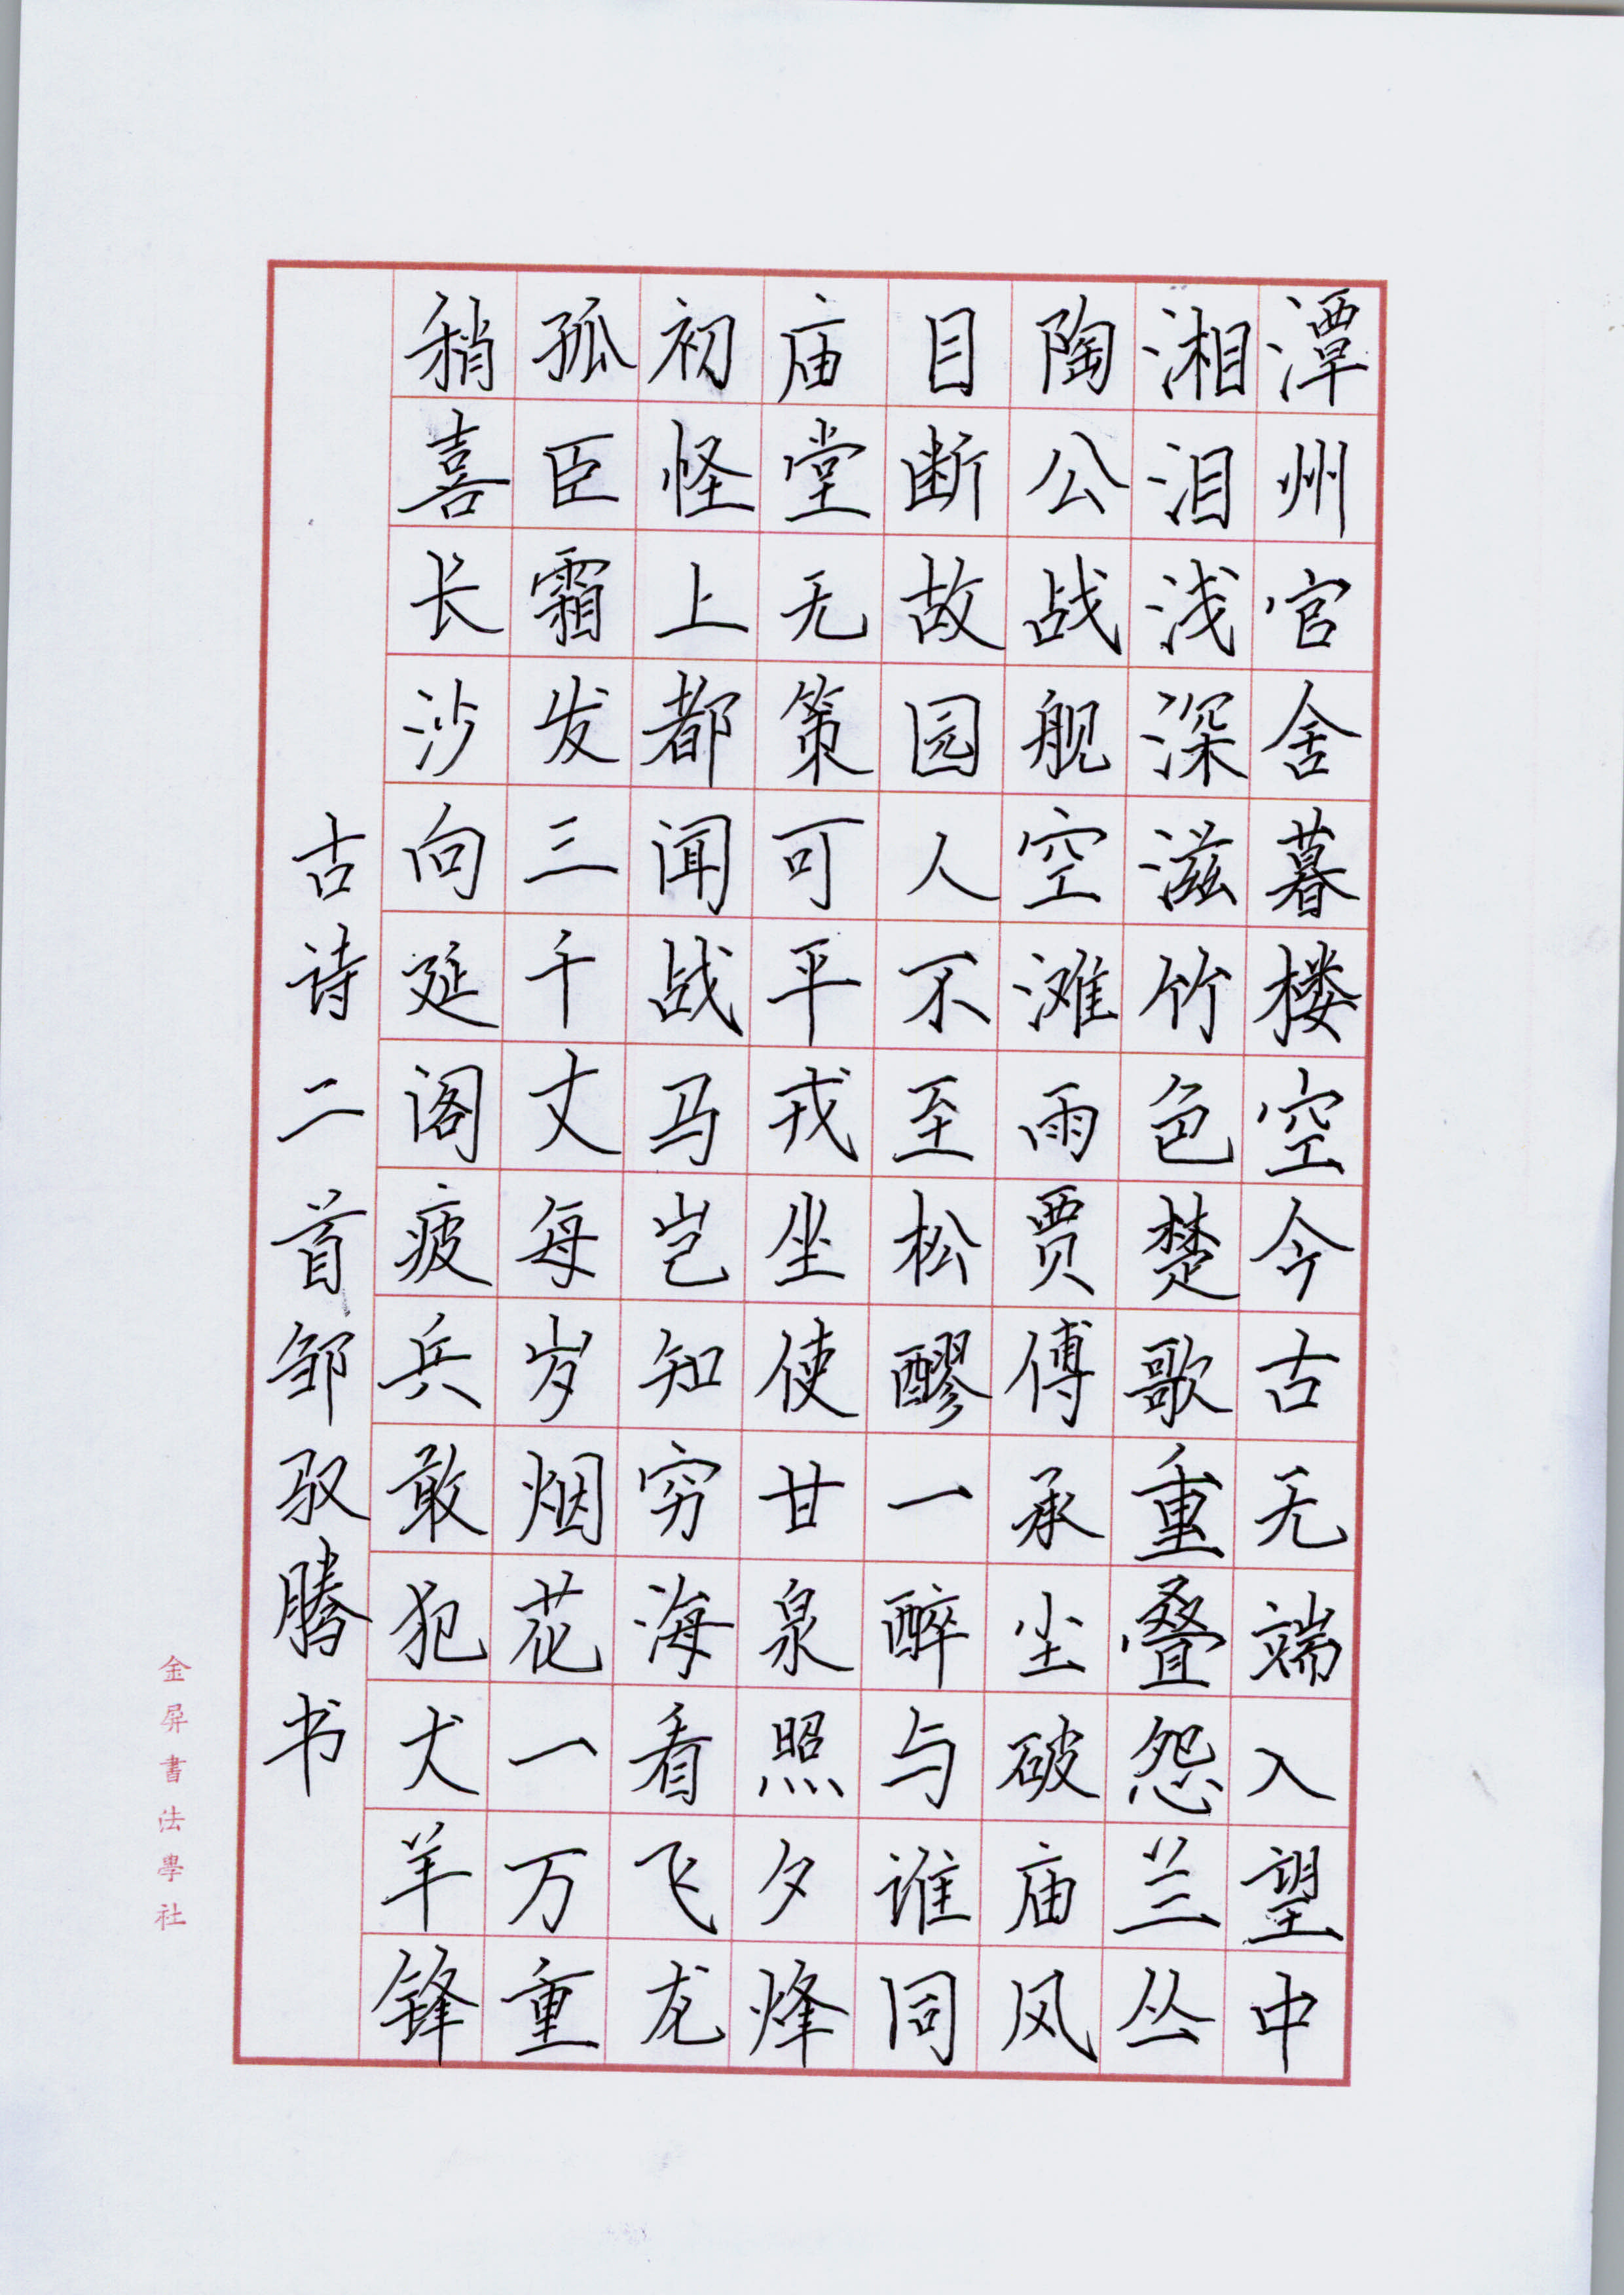 潭州官舍暮楼空今古无端入望中
湘泪浅深滋竹色楚歌重叠怨兰丛
陶公战舰空滩雨贾傅承尘破庙风
目断故园人不至松醪一醉与谁同
庙堂无策可平戎坐使甘泉照夕烽
初怪上都闻战马岂知穷海看飞龙
孤臣霜发三千丈每岁烟花一万重
稍喜长沙向延阁疲兵敢犯犬羊锋
古诗二首邹驭腾书
金屏書法學社